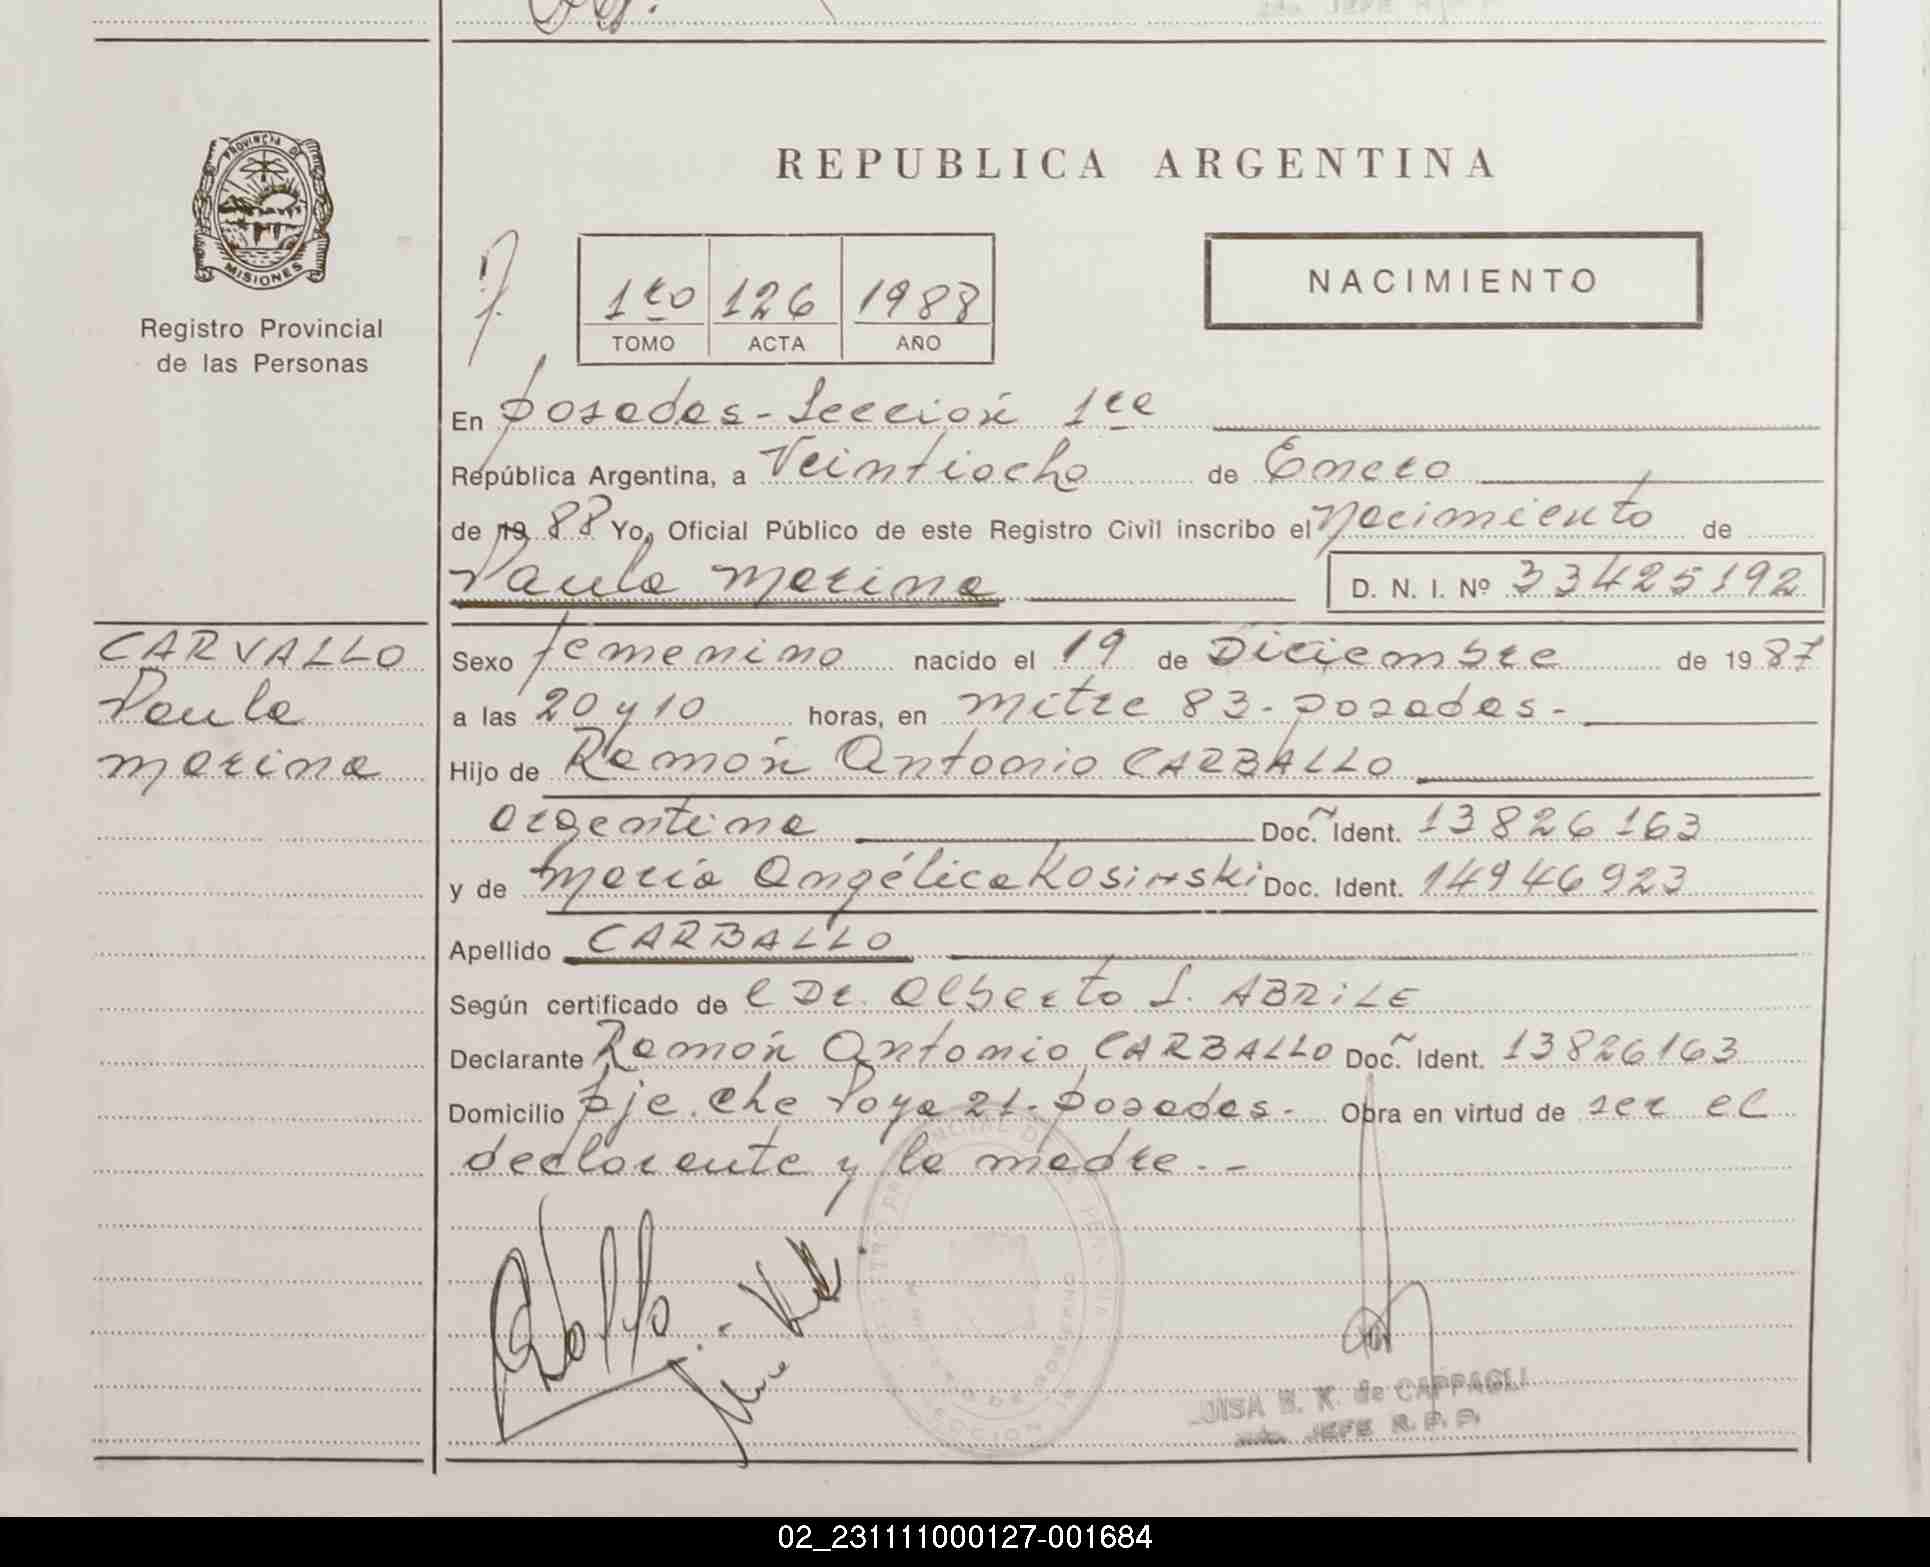 PROVINCIA DE
MISIONES
Registro Provincial
de las Personas
REPUBLICA ARGENTINA
1ro 126 1988
TOMO ACTA AÑO
NACIMIENTO
En Posadas - Sección 1ra
República Argentina, a Veintiocho de Enero
de 19 88 Yo, Oficial Público de este Registro Civil inscribo el Nacimiento de
Paula Marina D. N. I. Nº 33425192
CARVALLO
Paula
Marina
Sexo femenino nacido el 19 de Diciembre de 19 87
a las 20 y 10 horas, en Mitre 83 - Posadas -
Hijo de Ramón Antonio CARBALLO
Argentina Doc. Ident. 13826163
y de María Angélica Kosinski Doc. Ident. 14946923
Apellido CARBALLO
Según certificado de l Dr. Alberto J. ABRiLE
Declarante Ramón Antonio CARBALLO Doc. Ident. 13826163
Domicilio Pje. Che Poya 21 - Posadas - Obra en virtud de ser el
declarante y la madre. -
LUISA B. K. de CAPPAGLI
JEFE R. P. P.
02_231111000127-001684